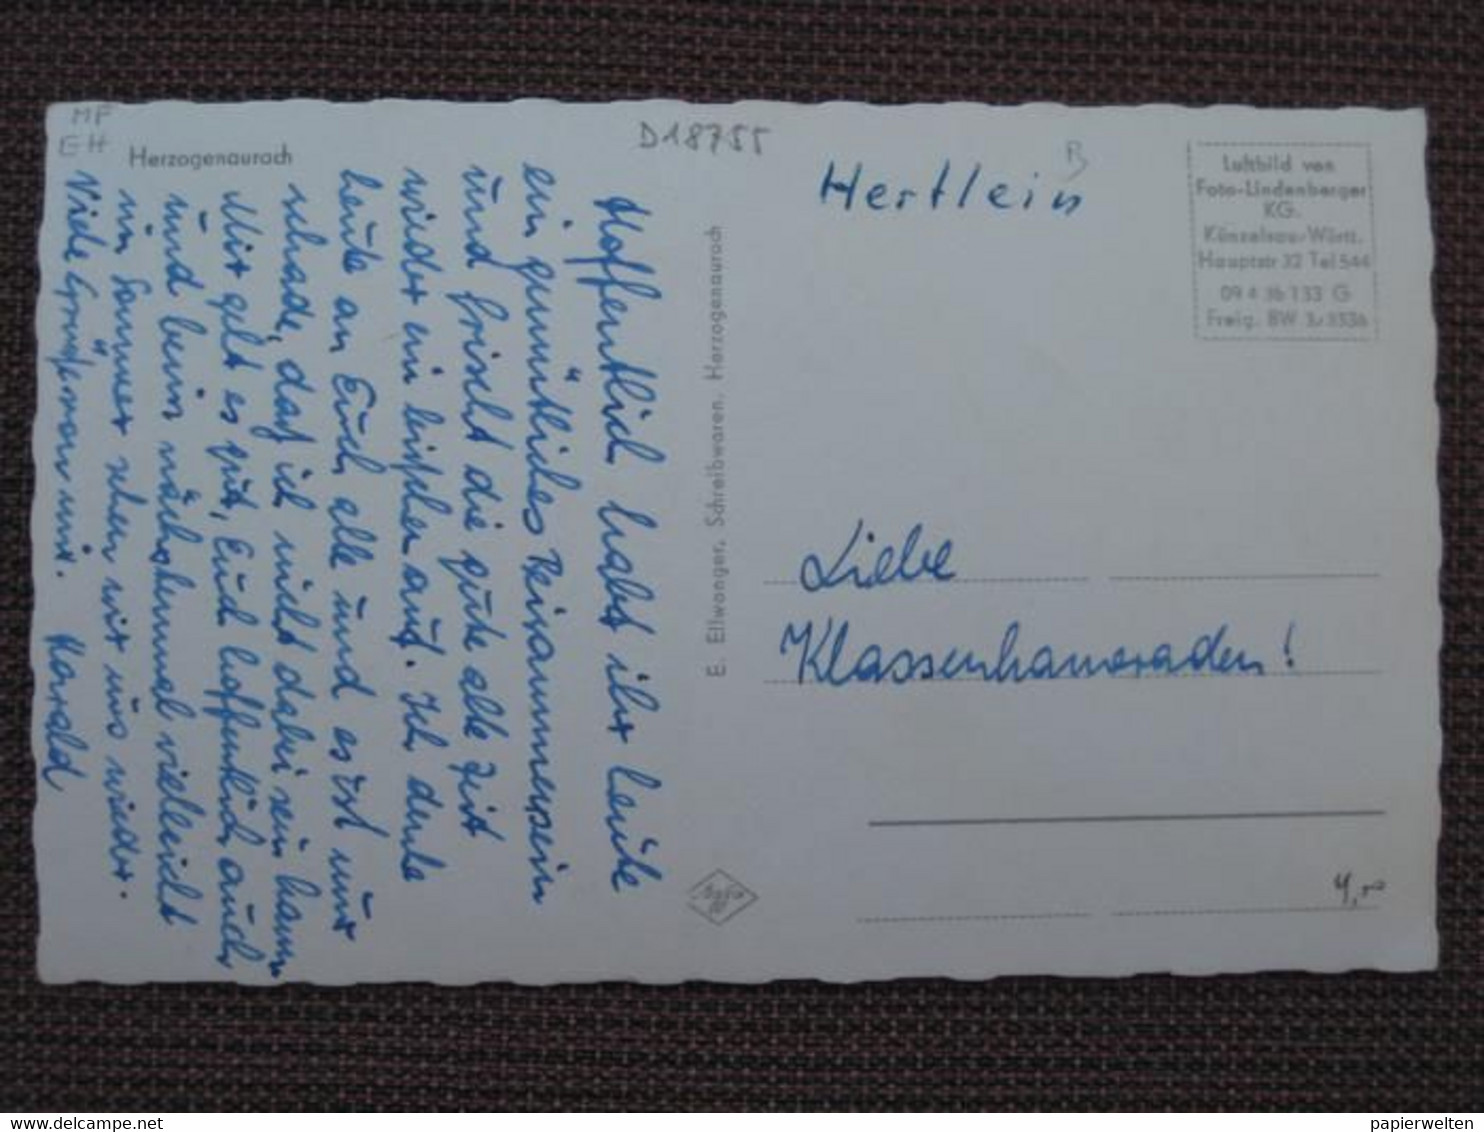 MF
EH
Herzogenaurach
D18755
Hertlein
B
Luftbild von
Foto-Lindenberger
KG.
Künzelsau-Württ.
Hauptstr 32 Tel 544
133 G
Freig. BW
E. Ellwanger, Schreibwaren, Herzogenaurach
Liebe
Klassenkameraden!
Hoffentlich habt ihr heute
ein gemütliches Beisammensein
und frischt die gute alte Zeit
wieder ein bißchen auf. Ich denke
heute an Euch alle und es ist nur
schade, daß ich nicht dabei sein kann
Mir geht es gut, Euch hoffentlich auch
und beim nächstenmal vielleicht
im Sommer sehen wir uns wieder.
Viele Grüße
Harald
Agfa
4,00
papierwelten